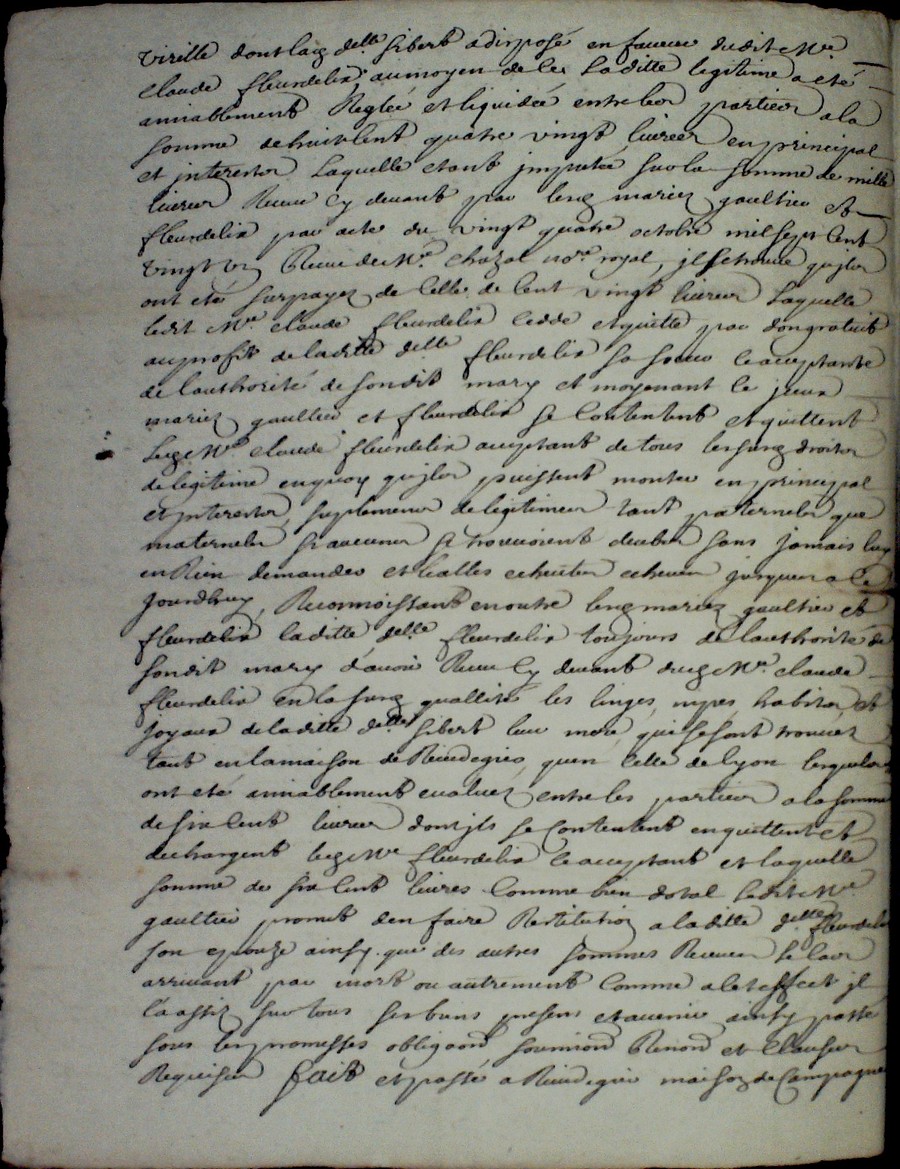 virille dont laq delle Sibert a disposé en faveur dudit Me
Claude fleurdelix, au moyen de ce Laditte legitime a eté
amiablement Reglée et liquidée entre les parties a la
somme de huit Cent quatre vingt livres en principal
et interests Laquelle etant imputée sur la somme de mille
livres Receue Cy devant par lesq mariez gaultier et
fleurdelix par acte du vingt quatre octobre mil sept Cent
vingt Receu de Me Chazal nore royal, il se trouve qu'ils
ont eté surpayez de Celle de Cent vingt livres Laquelle
ledit Me Claude fleurdelix Cedde et quitte par don gratuit
au profit de laditte delle fleurdelix sa soeur ce acceptante
de l'authorité de sondit mary et moyenant ce iceux
mariez gaultier et fleurdelix se Contentent et quittent
led Me Claude fleurdelix acceptant de tous les susq droits
de legitime en quoy qu'ils puissent monter en principal
et interests, suplement de legitimes tant paternels que
maternels si aucuns se trouvoient deubs sans jamais luy
en Rien demander et ce a Cause echeutes jusques a Ce
Jourdhuy, Reconnoissant en outre lesq mariez gaultier et
fleurdelix laditte delle fleurdelix toujours de l'authorité de
sondit mary d'avoir Receu Cy devant dud Me Claude
fleurdelix en la susq quallité les linges, nipes, habits, et
joyaux de laditte delle Sibert leur mere, qui se sont trouvez
tant en la maison de qu'en Celle de lyon lesquels
ont eté amiablement evaluez entre les parties a la somme
de six Cent livres dont ils se Contentent en quittent et
dechargent led Me fleurdelix ce acceptant et laquelle
somme de six Cent livres Comme bien dotal ledit Me
gaultier promet d'en faire Restitution a laditte delle fleurdelix
son epouze ainsy que des autres sommes Receues le Cas
arrivant par mort ou autrement Comme a Cet effect il
l'assis sur tous ses biens presens et avenir ainsy passé
sous les promesses obligaons soumions Renons et Clauses
Requises fait et passé a maison de Campagne